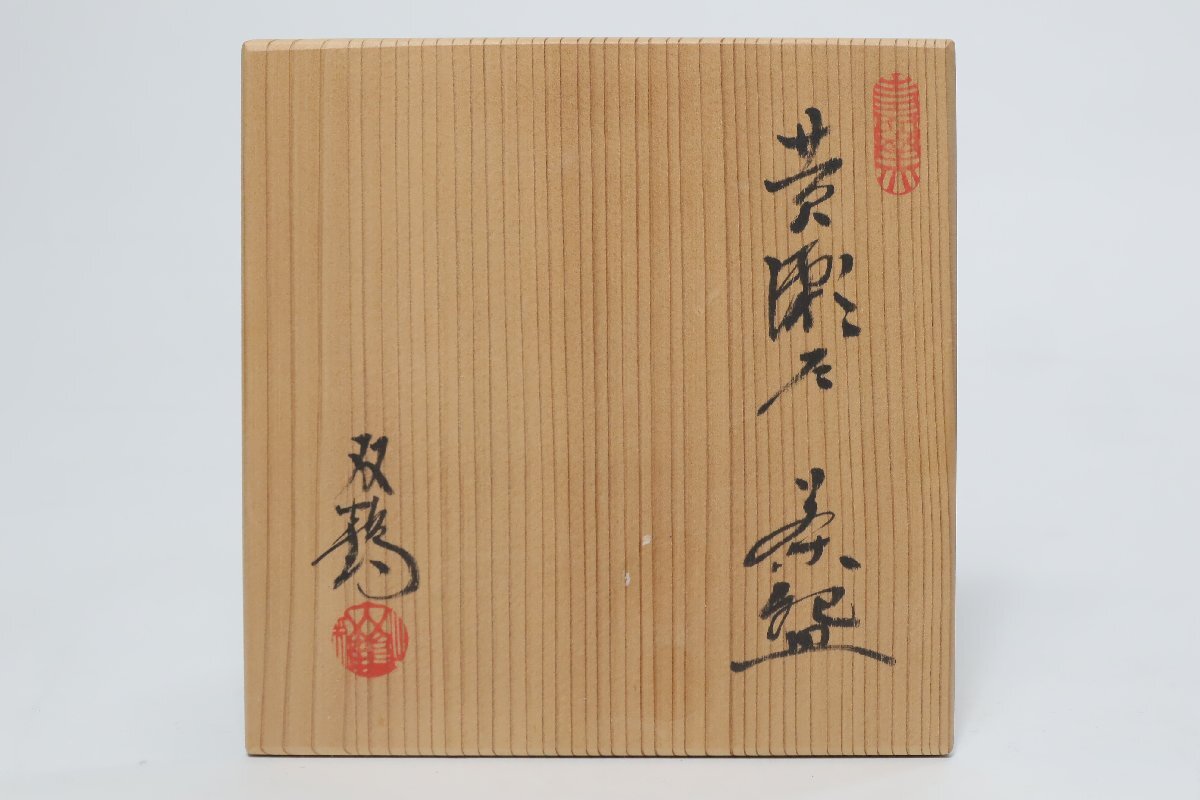 黄瀬戸 茶盌
双鶴